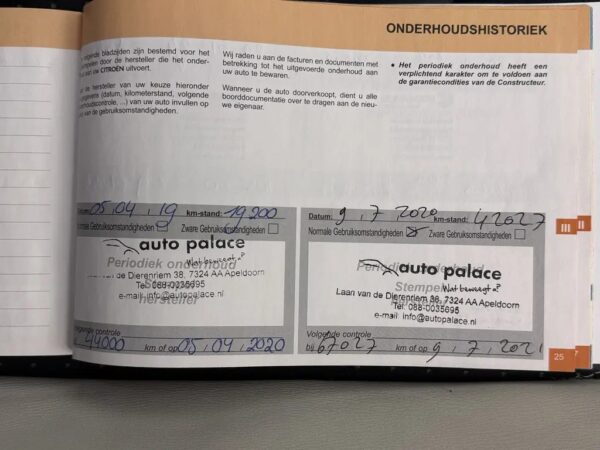 ONDERHOUDSHISTORIEK
volgende bladzijden zijn bestemd voor het
stempelen door de hersteller die het onder-
van uw CITROËN uitvoert.
de hersteller van uw keuze hieronder
gegevens (datum, kilometerstand, volgende
onderhoudscontrole, ...) van uw auto invullen op
van de gebruiksomstandigheden.
Wij raden u aan de facturen en documenten met
betrekking tot het uitgevoerde onderhoud aan
uw auto te bewaren.
Wanneer u de auto doorverkoopt, dient u alle
boorddocumentatie over te dragen aan de nieu-
we eigenaar.
• Het periodiek onderhoud heeft een
verplichtend karakter om te voldoen aan
de garantiecondities van de Constructeur.
Datum: 05.04.19 km-stand: 19,200
Normale Gebruiksomstandigheden Zware Gebruiksomstandigheden
auto palace
Wat beweegt u?
Periodiek onderhoud
van de Dierenriem 38, 7324 AA Apeldoorn
Tel: 088-0035695
e-mail: info@autopalace.nl
hersteller
Volgende controle
44000 km of op 05.04.2020
Datum: 9.7.2020 km-stand: 42027
Normale Gebruiksomstandigheden Zware Gebruiksomstandigheden
auto palace
Wat beweegt u?
Periodiek onderhoud
Laan van de Dierenriem 38, 7324 AA Apeldoorn
Stempel
Tel: 088-0035695
e-mail: info@autopalace.nl
Volgende controle
bij 67027 km of op 9.7.2021
III
II
25